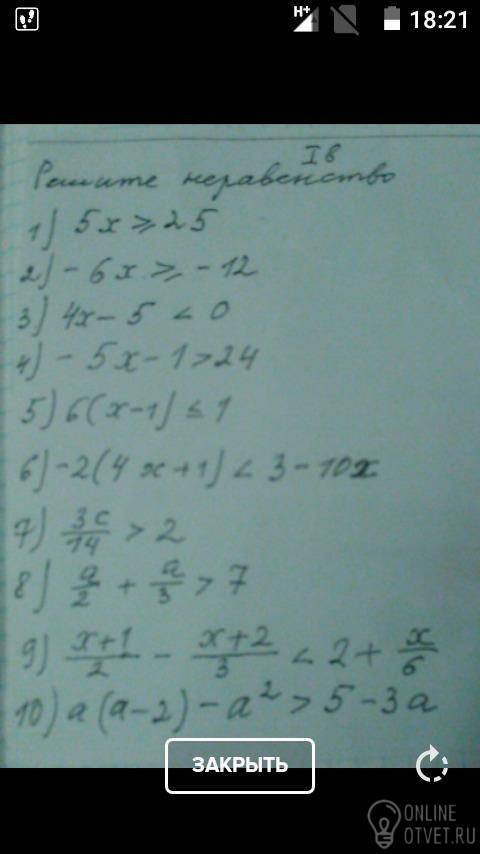 H+ 18:21
I в
Решите неравенство
1) 5x ≥ 25
2) -6x ≥ -12
3) 4x - 5 < 0
4) -5x - 1 > 24
5) 6(x-1) ≤ 1
6) -2(4x+1) < 3 - 10x
7) 3c/14 > 2
8) a/2 + a/3 > 7
9) x+1/2 - x+2/3 < 2 + x/6
10) a(a-2) - a² > 5 - 3a
ЗАКРЫТЬ
ONLINE
OTVET.RU